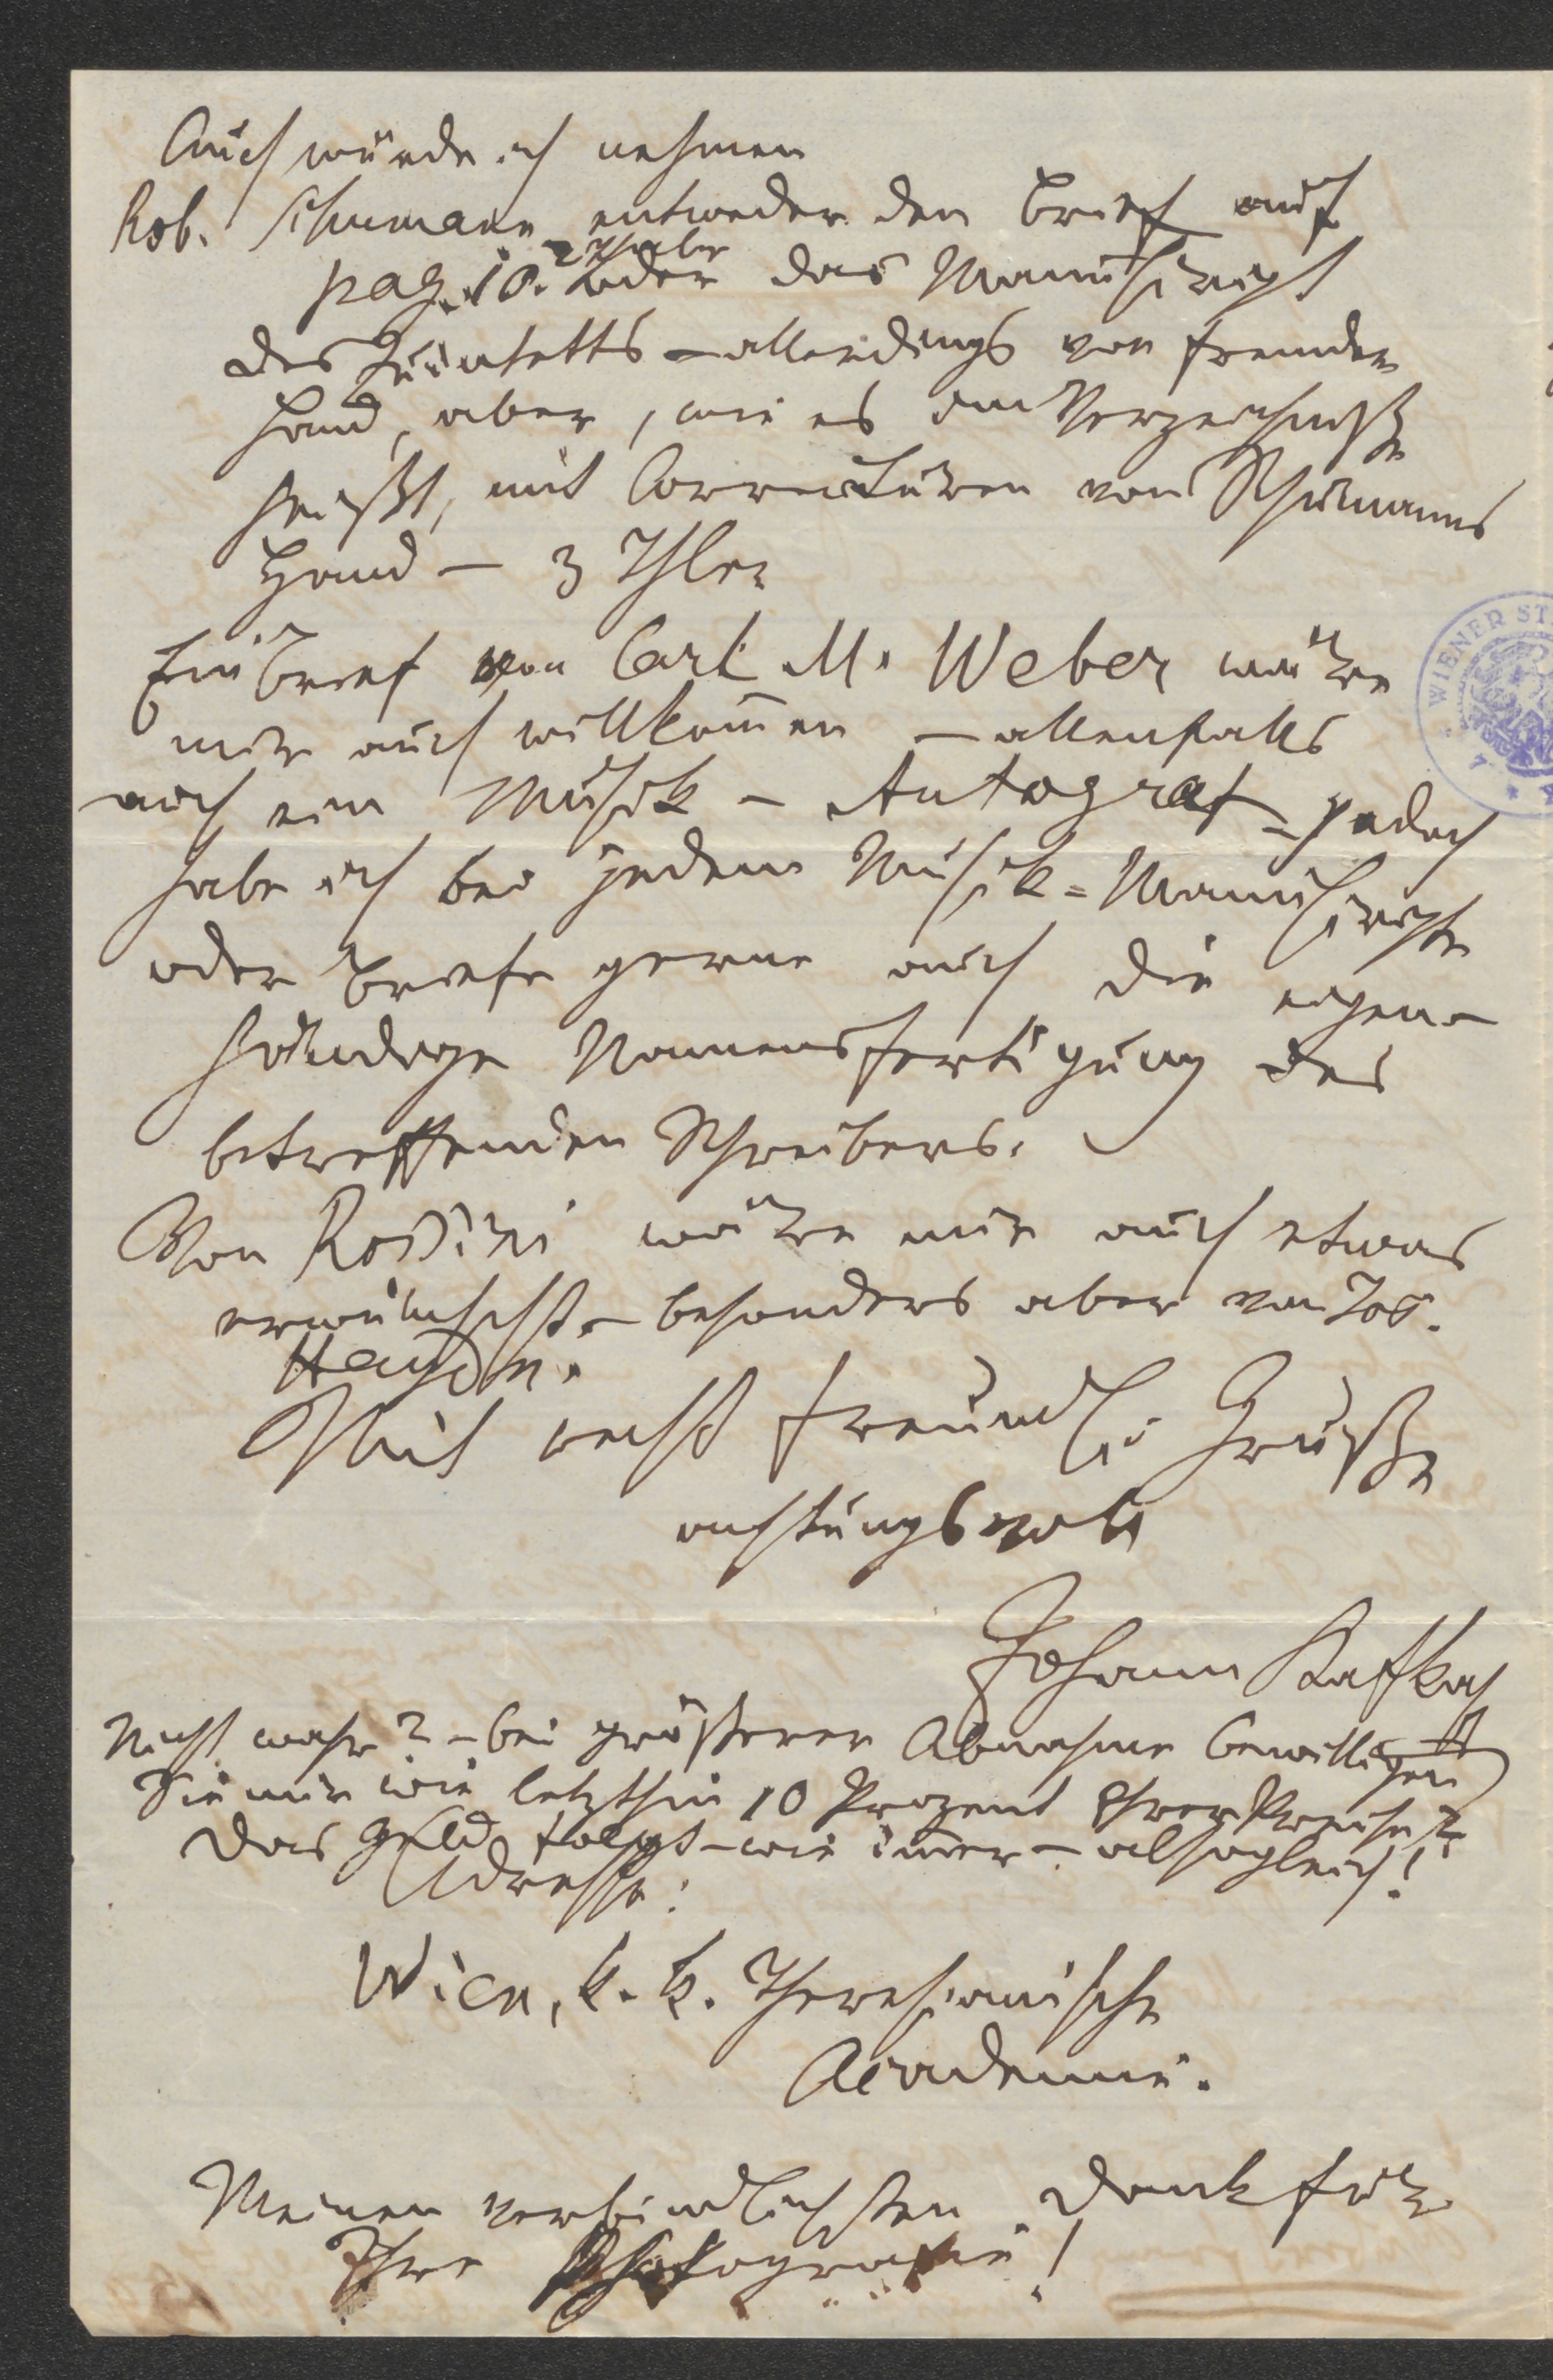 Auch würde ich nehmen
Rob. Schumann entweder den Brief auf
2 Thaler
pag. 10. oder das Manuscript
des Quintetts – allerdings von fremder
Hand, aber, wie es im Verzeichniße
heißt, mit Correcturen von Schumanns
Hand – 3 Thler
Ein Brief von Carl M. Weber wäre
mir auch willkom̅en – allenfalls
auch ein Musik – Autograf – jedoch
habe ich bei jedem Musik=Manuscripte
oder Briefe gerne auch die eigen–
händige Namensfertigung des
betreffenden Schreibers.
Von Rossini wäre mir auch etwas
erwünscht – besonders aber von Jos.
Haydn.
Mit recht freundl. Gruße
achtungsvoll
Johann Kafka
Nicht wahr? – bei größerer Abnahme bewilligen
Sie mir wie letzthin 10 Prozent Ihrer Preise?
Das Geld folgt – wie im̅er – alsogleich!
Adresse:
Wien, k. k. Theresianische
Academie.
Meinen verbindlichsten Dank für
Ihre Photografie!
WIENER ST